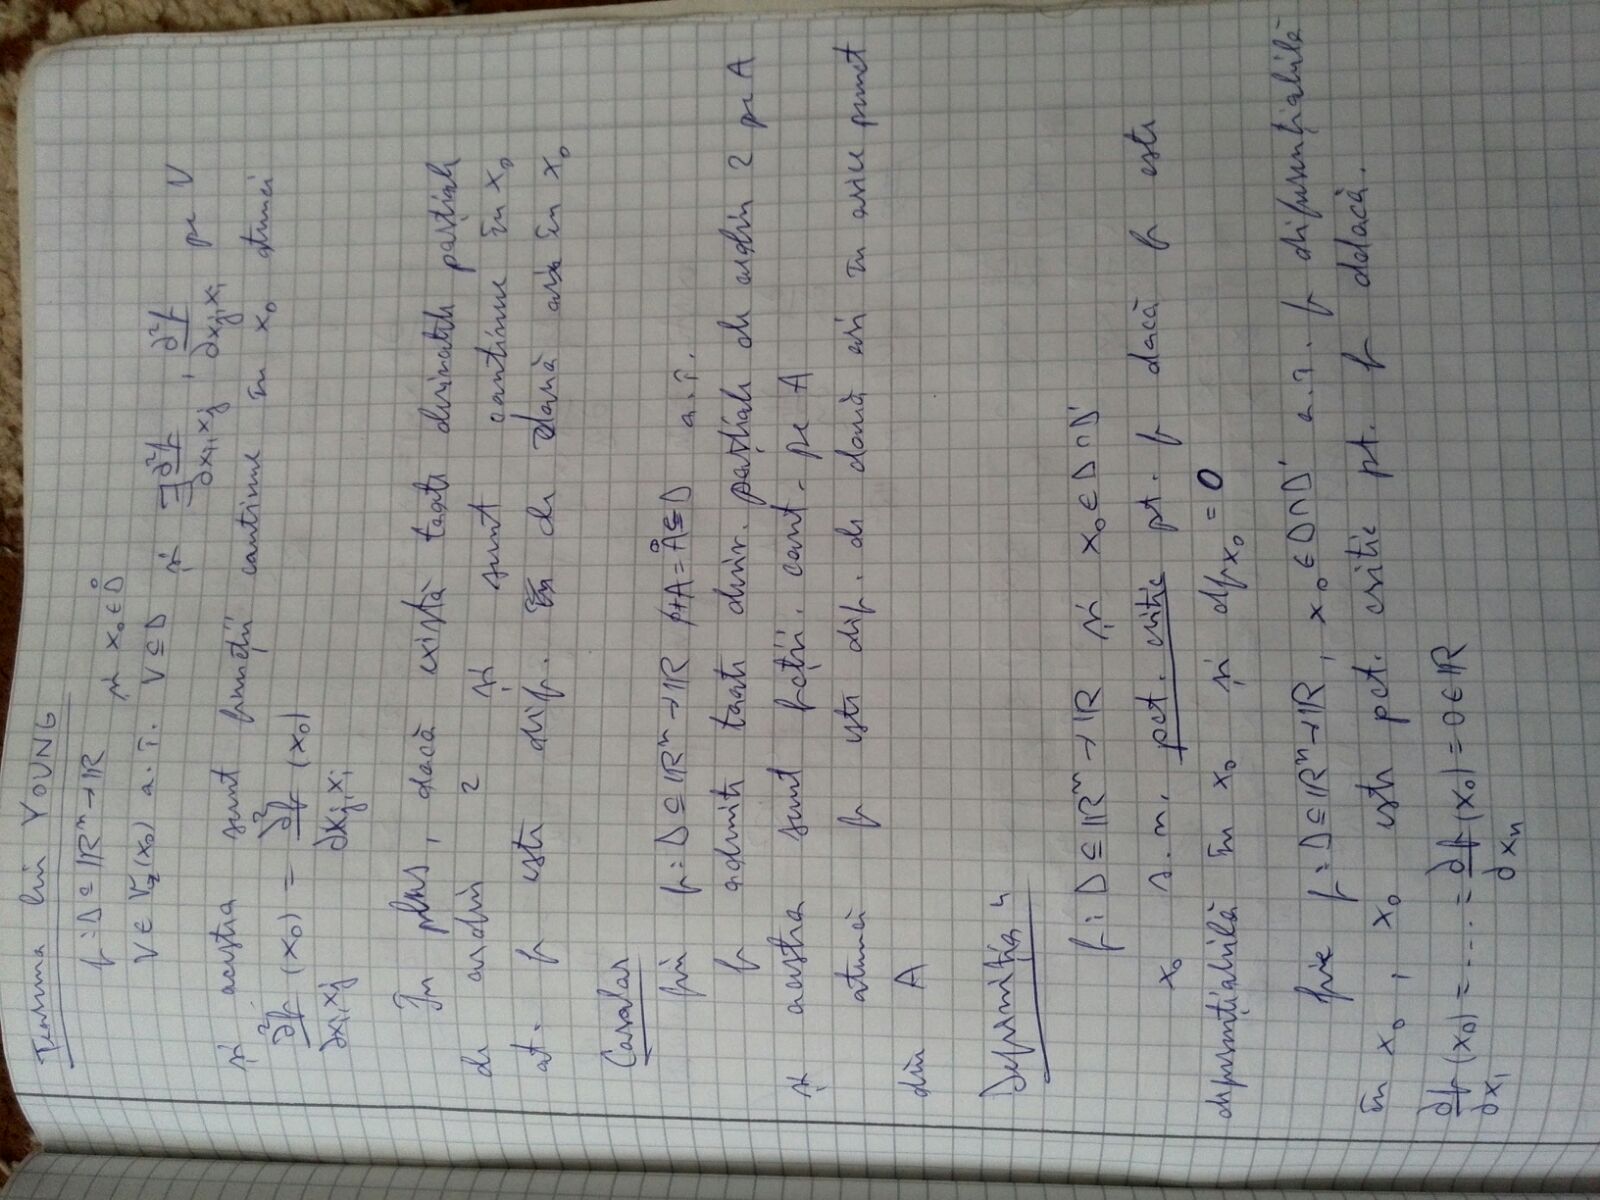 Teorema lui YOUNG
f: D ⊆ ℝⁿ → ℝ și x₀ ∈ D̊
V ∈ V(x₀) a.î. V ⊆ D și ∃ ∂²f/∂xᵢ,xⱼ , ∂²f/∂xⱼ,xᵢ pe V
și acestea sunt funcții continue în x₀ atunci
∂²f/∂xᵢ,xⱼ (x₀) = ∂²f/∂xⱼ,xᵢ (x₀)
În plus, dacă există toate derivatele parțiale
de ordin 2 și sunt continue în x₀
at. f este dif. de două ori în x₀
Corolar
fie f: D ⊆ ℝⁿ → ℝ A = Å ⊆ D a.î.
f admite toate deriv. parțiale de ordin 2 pe A
și acestea sunt fcții. cont. pe A
atunci f este dif. de două ori în orice punct
din A
Definiția 4
f: D ⊆ ℝⁿ → ℝ și x₀ ∈ D ∩ D'
x₀ s.n. pct. critic pt. f dacă f este
diferențiabilă în x₀ și df x₀ = 0
fie f: D ⊆ ℝⁿ → ℝ, x₀ ∈ D ∩ D' a.î. f diferențiabilă
în x₀, x₀ este pct. critic pt. f dacă.
∂f/∂x₁ (x₀) = ..... = ∂f/∂xₙ (x₀) = 0 ∈ ℝ